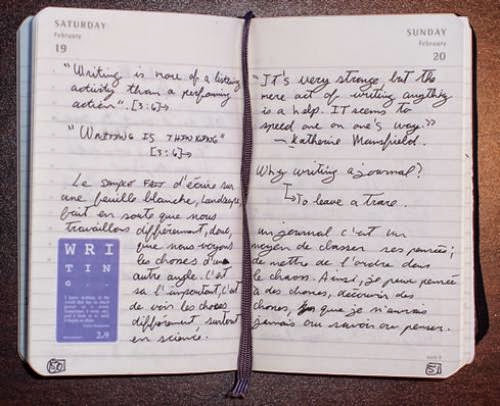 SATURDAY
February
19
"Writing is more of a listening
activity than a performing
action". [3:6]
"WRITING IS THINKING"
[3:6]
Le SIMPLE FAIT d'écrire sur
une feuille blanche,
fait en sorte que nous
travaillons différemment, donc,
que nous voyons
les choses d'un
autre angle. C'est
ça l'important, c'est
de voir les choses
différemment, surtout
en science.
WRI
TIN
G
2.9
50
SUNDAY
February
20
"It's very strange, but the
mere act of writing anything
is a help. IT seems to
speed one on one's way."
- Katherine Mansfield.
Why writing a journal?
To leave a trace.
un journal c'est un
moyen de classer ses pensées;
de mettre de l'ordre dans
le chaos. Ainsi, je peux penser
à des choses, découvrir des
choses, que je n'aurais
jamais su savoir ou penser.
51